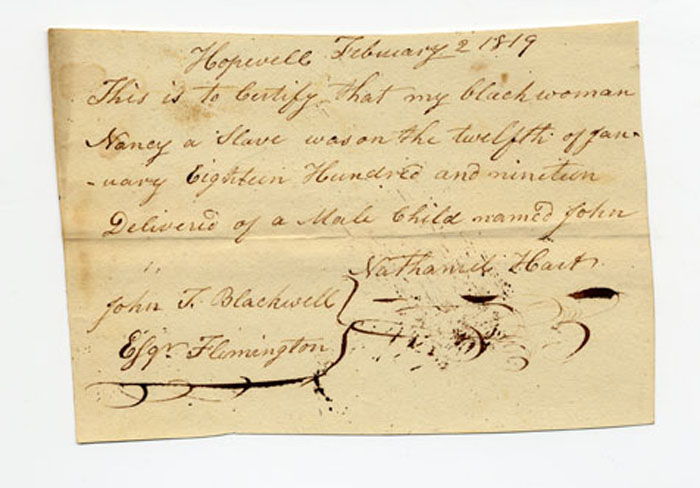 Hopewell February 2 1819
This is to Certify that my black woman
Nancy a Slave was on the twelfth of Jan-
-uary Eighteen Hundred and nineteen
Delivered of a Male Child named John
Nathaniel Hart
John T. Blackwell
Esqr. Flemington